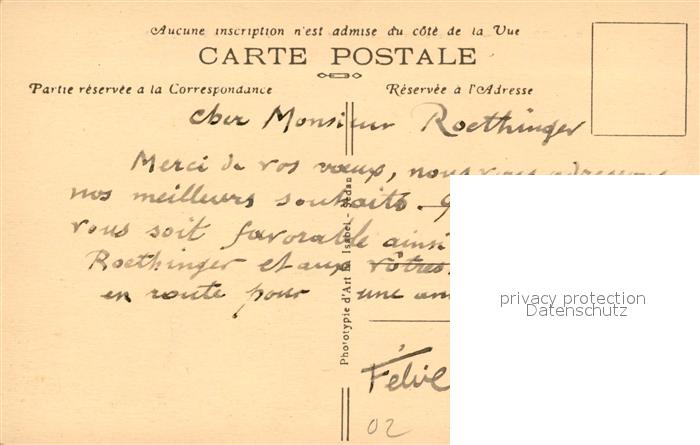 Aucune inscription n'est admise du côté de la Vue
CARTE POSTALE
Partie réservée a la Correspondance
Réservée à l'Adresse
Cher Monsieur Roethinger
Merci de vos vœux, nous vous adressons
nos meilleurs souhaits.
vous soit favorable ainsi
Roethinger et aux vôtres
en route pour une
Phototypie d'Art
Isabel - Sedan
privacy protection
Datenschutz
02